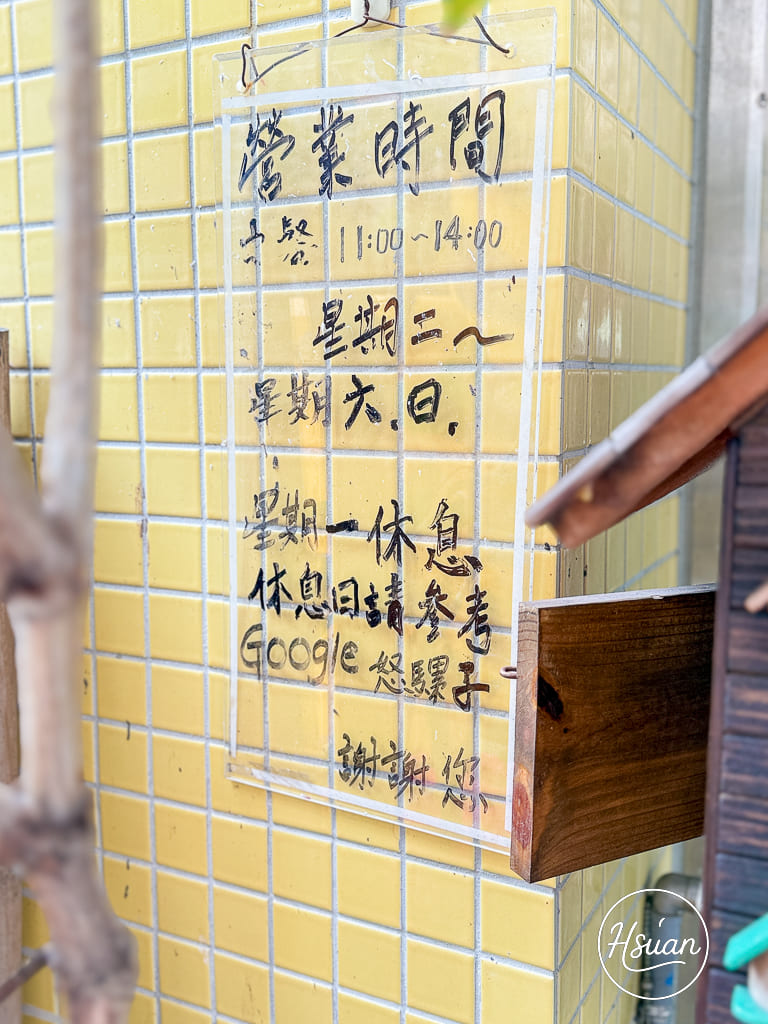 營業時間
午餐 11:00~14:00
星期二~
星期六.日.
星期一休息
休息日請參考
Google 怒騾子
謝謝您
Hsuan